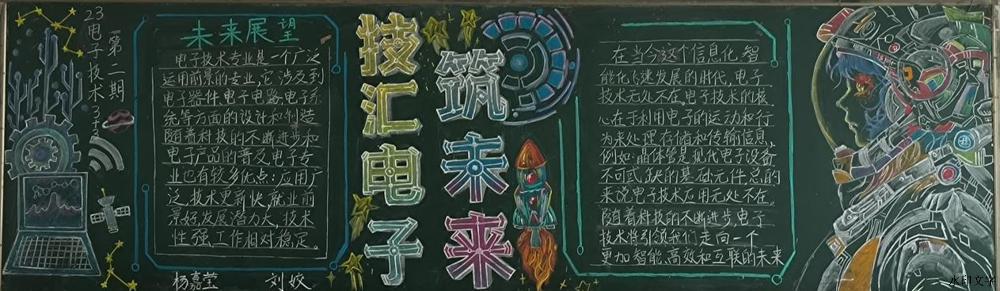 23电子技术
第二期
未来展望
电子技术专业是一个广泛
运用前景的专业,它涉及到
电子器件,电子电路,电子系
统等方面的设计和制造
随着科技的不断进步和
电子产品的普及,电子专
业也有较多优点:应用广
泛,技术更新快,就业前
景好,发展潜力大,技术
性强,工作相对稳定。
杨嘉莹 刘姣
技汇电子
筑未来
在当今这个信息化,智
能化占速发展的时代,电子
技术无处不在,电子技术的核
心在于利用电子的运动和行
为来处理存储和传输信息,
例如:晶体管是现代电子设备
不可或缺的基础元件,总的
来说电子技术应用无处不在,
随着科技的不断进步,电子
技术将引领我们走向一个
更加智能,高效和互联的未来
水印文字